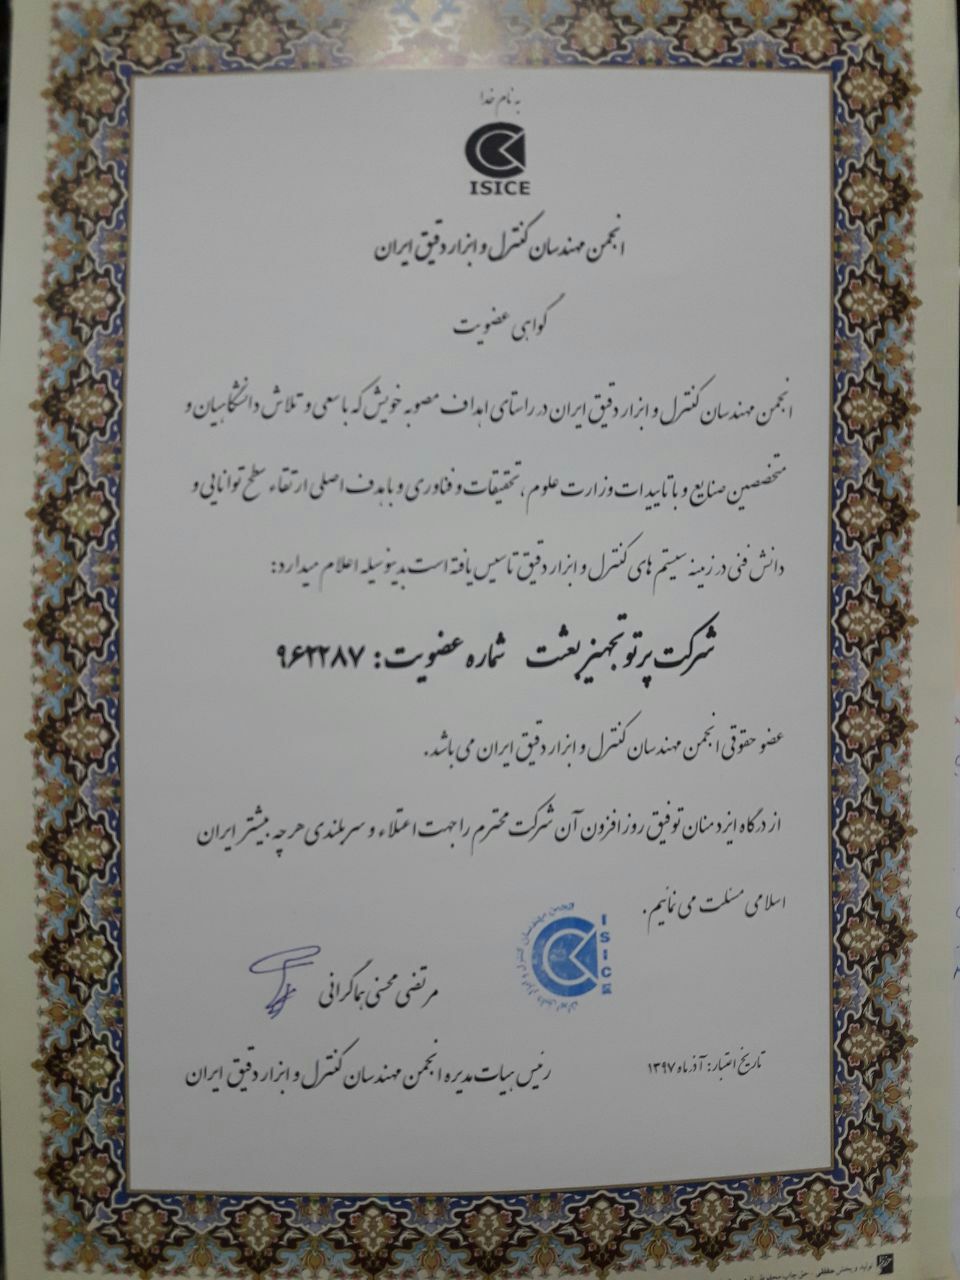 به نام خدا
ISICE
انجمن مهندسان کنترل و ابزار دقیق ایران
گواهی عضویت
انجمن مهندسان کنترل و ابزار دقیق ایران در راستای اهداف مصوبه خویش که با سعی و تلاش دانشگاهیان و
متخصصین صنایع و با تاییدات وزارت علوم ، تحقیقات و فناوری و با هدف اصلی ارتقاء سطح توانایی و
دانش فنی در زمینه سیستم های کنترل و ابزار دقیق تاسیس یافته است بدینوسیله اعلام میدارد:
شرکت پرتو تجهیز بعثت شماره عضویت: ۹۶۲۲۸۷
عضو حقوقی انجمن مهندسان کنترل و ابزار دقیق ایران می باشد.
از درگاه ایزد منان توفیق روز افزون آن شرکت محترم را جهت اعتلاء و سربلندی هر چه بیشتر ایران
اسلامی مسئلت می نمائیم.
انجمن مهندسان کنترل و ابزار دقیق ایران
ISICE
مرتضی محسنی هماگرانی
رئیس هیات مدیره انجمن مهندسان کنترل و ابزار دقیق ایران
تاریخ اعتبار: آذر ماه ۱۳۹۷
تولید و پخش حقیقی